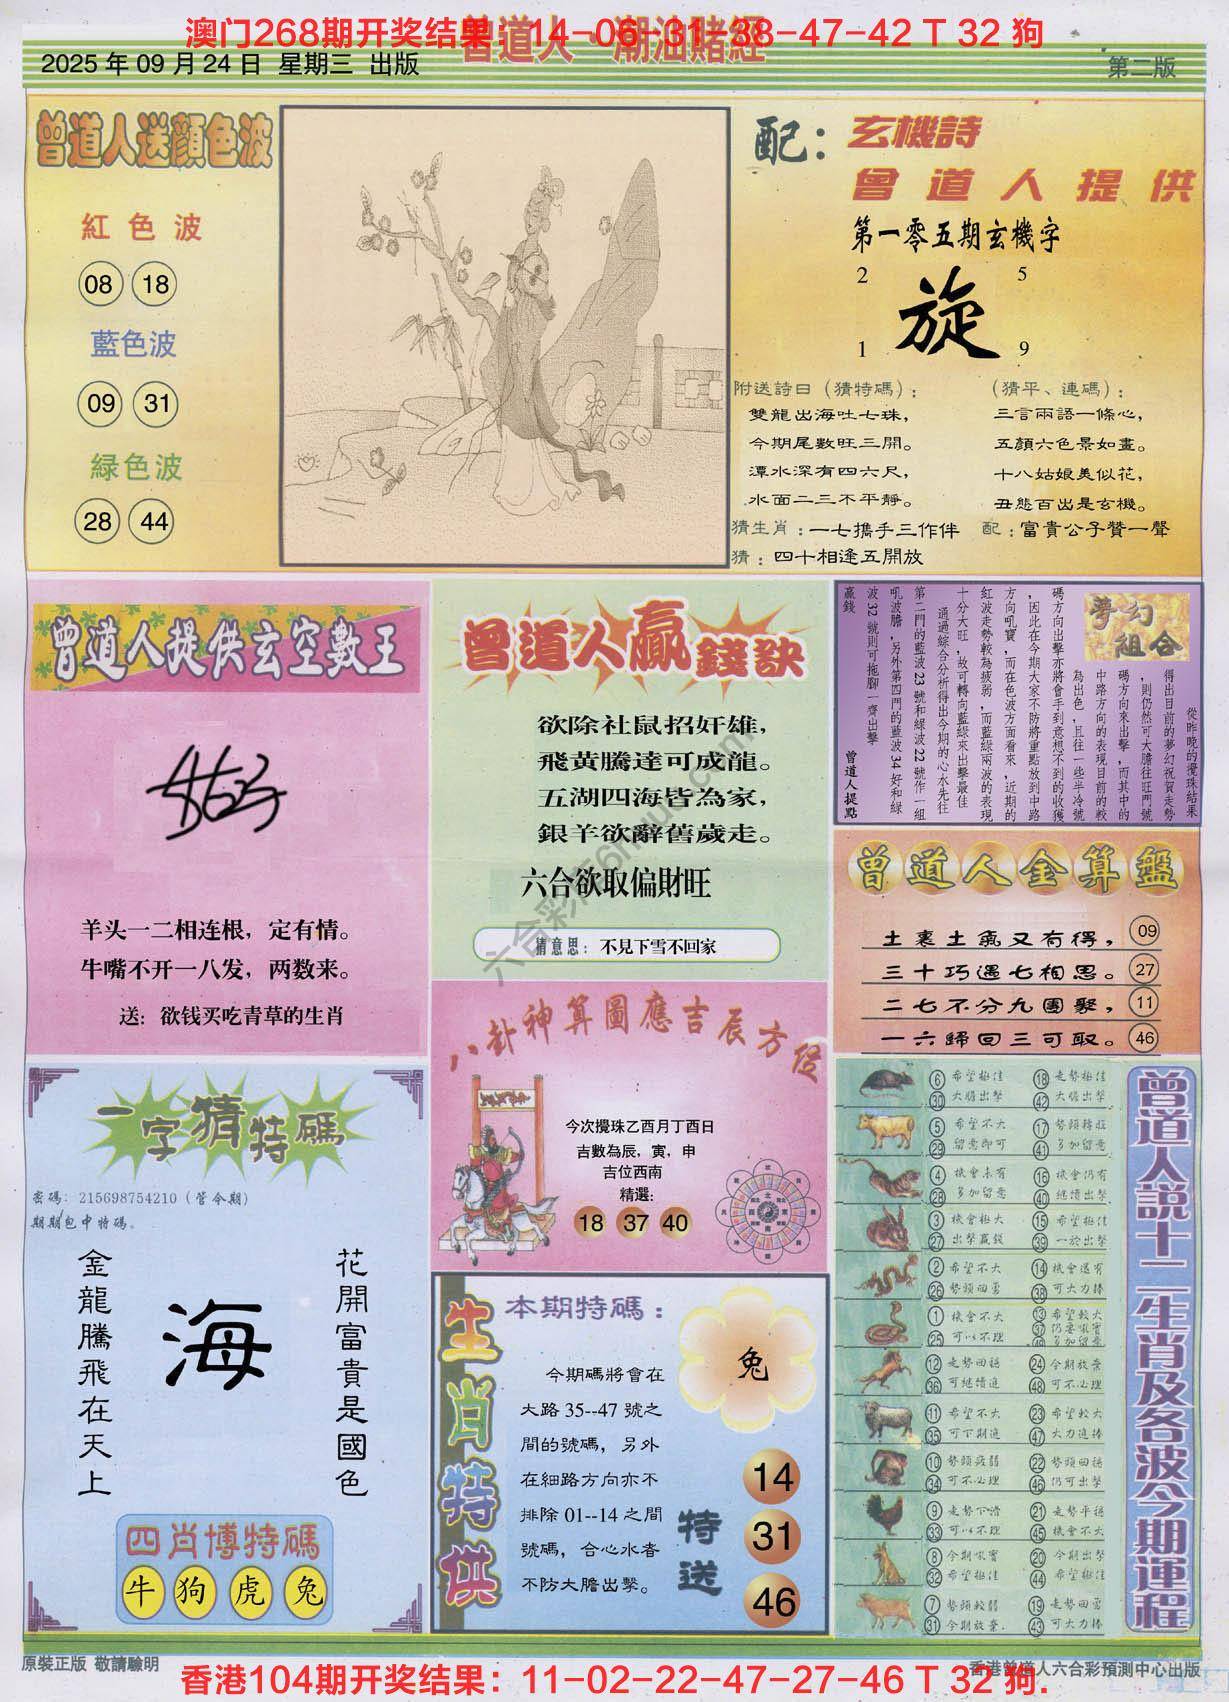 澳门268期开奖结果：14-06-31-38-47-42 T 32 狗
曾道人·潮汕賭經
2025 年 09 月 24 日 星期三 出版
第二版
曾道人送顔色波
紅色波
08 18
藍色波
09 31
緑色波
28 44
配：玄機詩
曾道人提供
第一零五期玄機字
2 5
旋
1 9
附送詩曰（猜特碼）：
雙龍出海吐七珠，
今期尾數旺三開。
潭水深有四六尺，
水面二三不平靜。
（猜平、連碼）：
三言兩語一條心，
五顔六色景如畫。
十八姑娘美似花，
丑態百出是玄機。
猜生肖：一七攜手三作伴
配：富貴公子贊一聲
猜：四十相逢五開放
曾道人提供玄空數王
羊头一二相连根，定有情。
牛嘴不开一八发，两数来。
送：欲钱买吃青草的生肖
曾道人贏錢訣
欲除社鼠招奸雄，
飛黃騰達可成龍。
五湖四海皆為家，
銀羊欲辭舊歲走。
六合欲取偏財旺
猜意思：不見下雪不回家
夢幻組合
從昨晚的攪珠結果
得出目前的夢幻祝賀走勢
，則仍然可大膽往旺門號
碼方向來出擊，而其中的
中路方向的表現目前的較
為出色，且往一些半冷號
碼方向出擊亦將會手到意想不到的收獲
，因此在今期大家不防將重點放到中路
方向吼寶，而在色波方面看來，近期的
紅波走勢較為疲弱，而藍綠兩波的表現
十分大旺，故可轉向藍綠來出擊最佳
通過綜合分析得出今期的心水先往
第二門的藍波 23 號和綠波 22 號作一組
吼波膽，另外第四門的藍波 34 好和綠
波 32 號則可拖腳一齊出擊
贏錢
曾道人提點
曾道人金算盤
土裏土氣又有得， 09
三十巧遇七相思。 27
二七不分九團聚， 11
一六歸回三可取。 46
八卦神算圖應吉辰方位
今次攪珠乙酉月丁酉日
吉數為辰，寅，申
吉位西南
精選：
18 37 40
一字猜特碼
密碼：215698754210（管今期）
期期包中特碼。
花開富貴是國色
海
金龍騰飛在天上
四肖博特碼
牛 狗 虎 兔
生肖特供
本期特碼：
兔
今期碼將會在
大路 35--47 號之
間的號碼，另外
在細路方向亦不
排除 01--14 之間
號碼，合心水者
不防大膽出擊。
特送
14
31
46
曾道人說十二生肖及各波今期運程
6 希望極佳 18 走勢極佳
30 大膽出擊 42 大膽出擊
5 希望不大 17 勢頭轉旺
29 留意即可 41 多加留意
4 機會未有 16 機會仍有
28 多加留意 40 繼續出擊
3 機會極大 15 希望極佳
27 出擊贏錢 39 一於出擊
2 希望不大 14 機會還有
26 勢頭回勇 38 可大力捧
1 機會不大 13 希望較大
25 可以不理 37 仍要吼實
49 多加留意
12 走勢回穩 24 今期放棄
36 可繼續追 48 可不心理
11 希望不大 23 希望較大
35 可下期追 47 大力追捧
10 勢頭疲弱 22 勢頭回穩
34 可不心理 46 仍可出擊
9 走勢下滑 21 走勢平穩
33 可以不理 45 機會不大
8 今期吼實 20 今期出擊
32 希望極佳 44 希望極佳
7 勢頭較弱 19 走勢回勇
31 今期放棄. 43 可大力捧
原裝正版 敬請驗明
香港曾道人六合彩預測中心出版
香港104期开奖结果：11-02-22-47-27-46 T 32 狗.